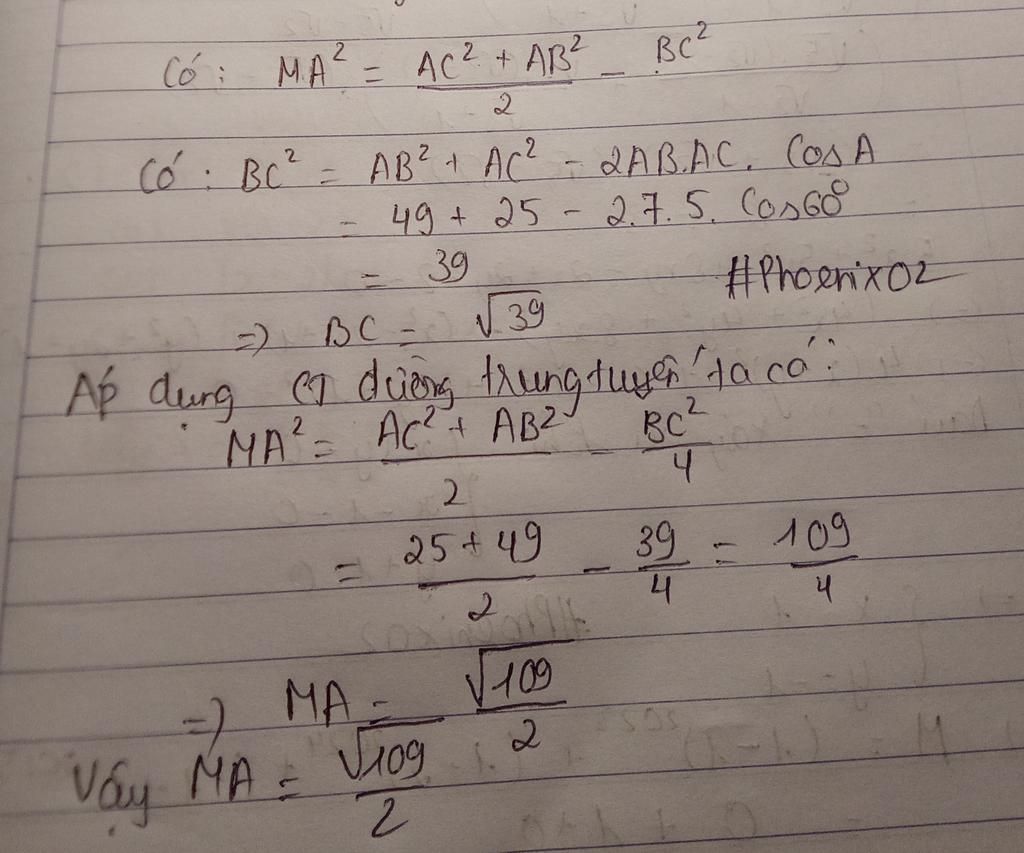 Có: MA² = (AC² + AB²)/2 - BC²
Có: BC² = AB² + AC² - 2AB.AC. CosA
= 49 + 25 - 2.7.5. Cos60°
= 39
#Phoenix02
=) BC = √39
Áp dụng CT đường trung tuyến ta có:
MA² = (AC² + AB²)/2 - BC²/4
= (25 + 49)/2 - 39/4 = 109/4
=) MA = √109/2
Vậy MA = √109/2